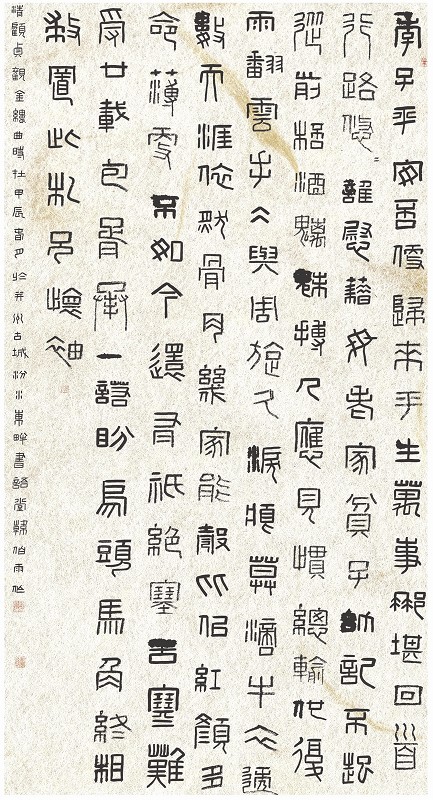 季子平安否便歸來平生萬事那堪回首
行路悠〻誰慰藉母老家貧子幼記不起
從前桮酒魑魅搏人應見慣總輸他復
雨翻雲手仌與周旋久淚痕莫滴牛衣透
數天涯依然骨肉幾家能彀比佀紅顏多
命薄更不如今還有祇絕塞苦寒難
受廿載包胥承一諾盼烏頭馬角終相
救置此札君懷袖
清顧貞觀金縷曲時在甲辰春月於并州古城汾水東畔書譜堂韓伯雨作